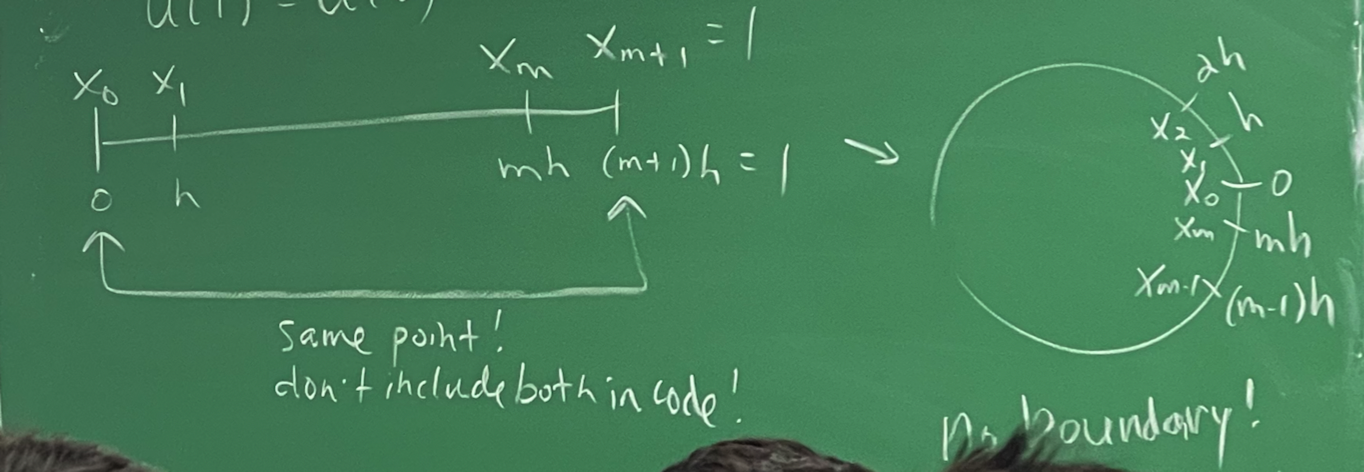 x₀ x₁ xₘ xₘ₊₁ = 1
0 h mh (m+1)h = 1
same point!
don't include both in code!
2h
x₂ h
x₁
x₀ 0
xₘ mh
xₘ₋₁ (m-1)h
no boundary!